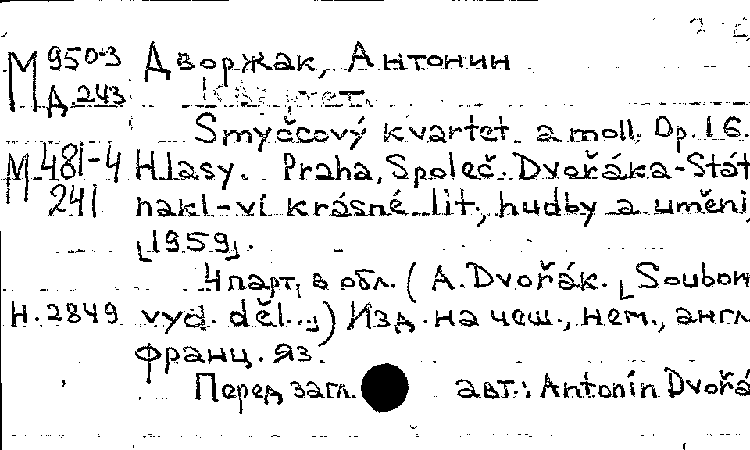 М 950-3 Дворжак, Антонин
Д 243 Квартет.
Smyčcový kvartet a moll. Op. 16.
М 481-4 Hlasy. Praha, Společ. Dvořáka-Stát
241 nakl-ví krásné lit., hudby a umění,
[1959].
4 парт. в обл. (A. Dvořák. [Soubor
Н. 2849 vyd. děl...]) Изд. на чеш., нем., англ
франц. яз.
Перед загл. авт.: Antonín Dvořá